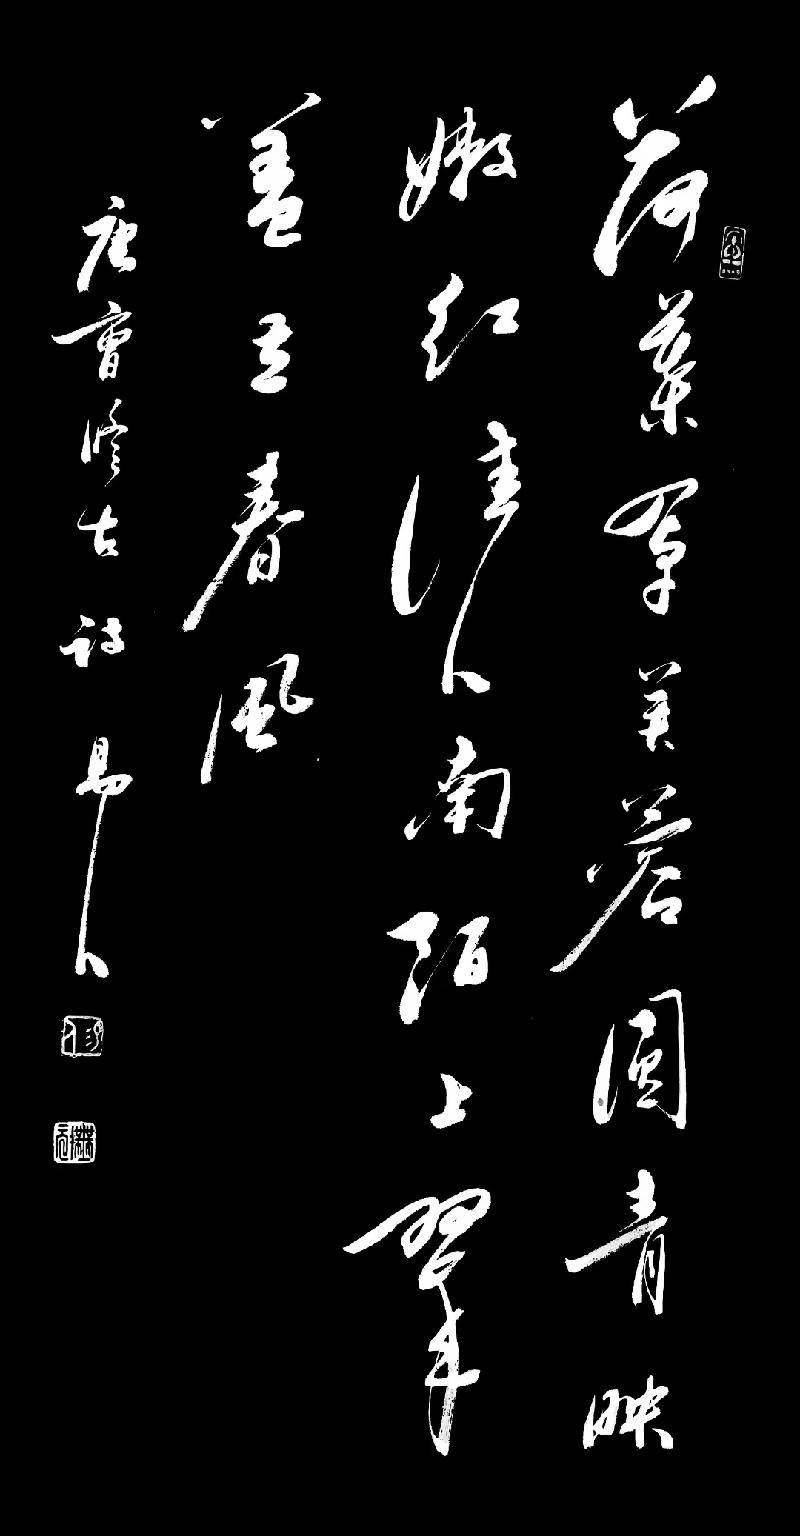 荷葉罩芙蓉圓青映
嫩紅佳人南陌上翠
蓋立春風
唐曹修古詩 易